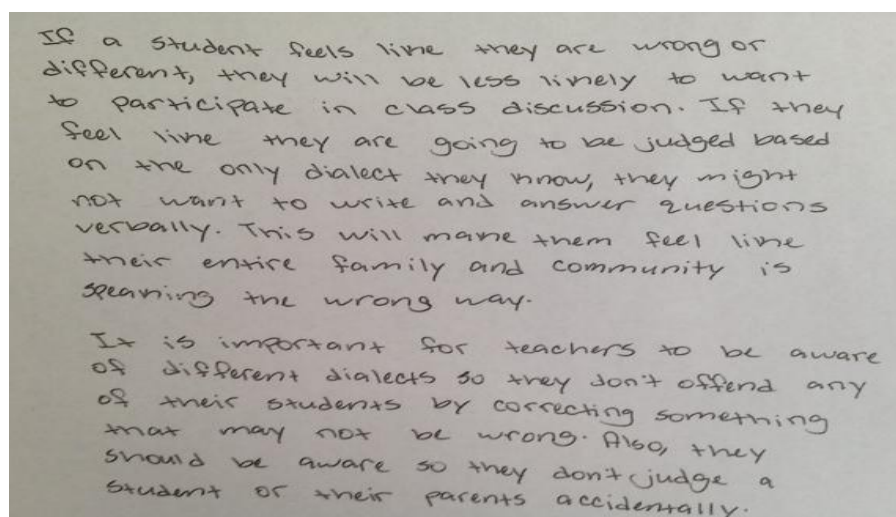 If a student feels like they are wrong or
different, they will be less likely to want
to participate in class discussion. If they
feel like they are going to be judged based
on the only dialect they know, they might
not want to write and answer questions
verbally. This will make them feel like
their entire family and community is
speaking the wrong way.
It is important for teachers to be aware
of different dialects so they don't offend any
of their students by correcting something
that may not be wrong. Also, they
should be aware so they don't judge a
student or their parents accidentally.